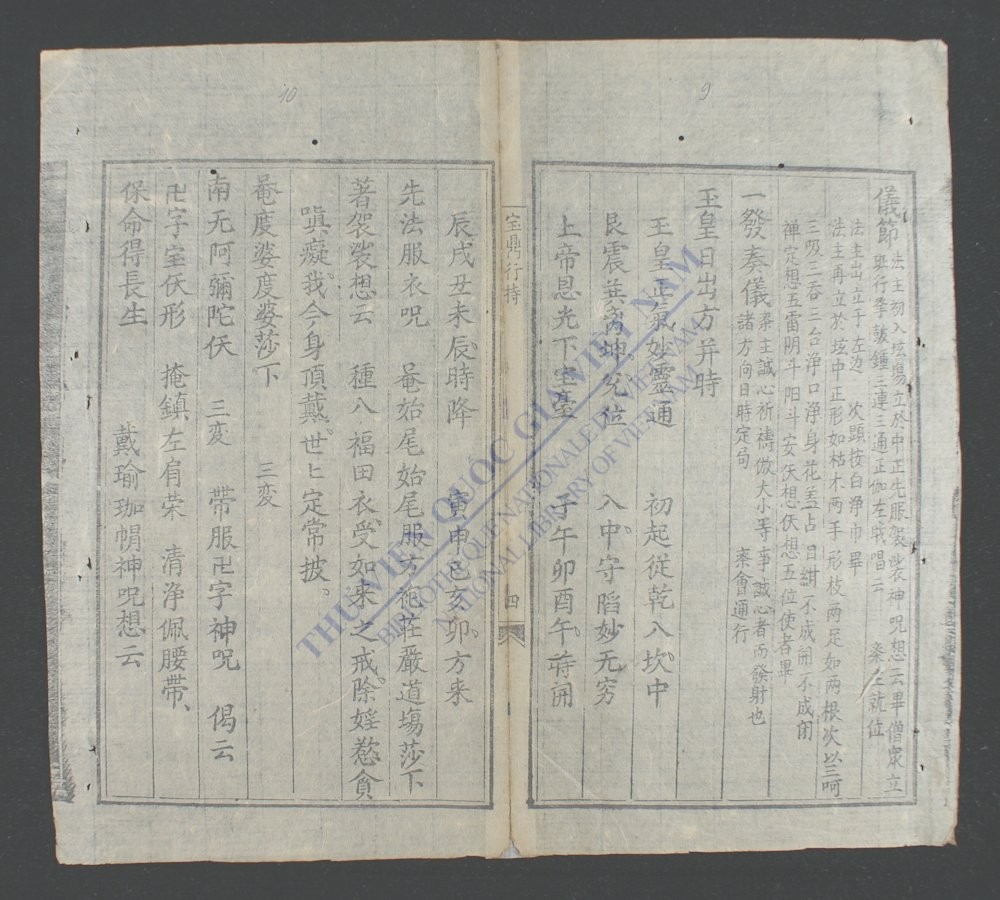 9
儀節 法主初入坛場立於中正先服袈裟神呪想云畢僧眾立
班行奉皷鍾三連三通正伽左戝唱云 斋主就位
法主出立于左边 次顕按白淨巾畢
法主再立於坛中正形如枯木两手形枝两足如两根次以三呵
三吸三吞三台淨口淨身花盖占目紺不成開不成閉
禅定想五雷阴斗阳斗安矢想仸想五位使者畢
一發奏儀 斋主誠心祈禱做大小等事誠心者而發射也
諸方向日時定局 斋會通行
玉皇日出方并時
王皇正氣妙靈通 初起從乾八坎中
艮震巽离坤兑位 八中守陷妙无穷
上帝恩光下宝臺 子午卯酉午荮開
宝鼎行持
四
10
辰戌丑未辰時降 寅申巳亥卯方来
先法服衣呪 菴始尾始尾服方袍莊嚴道塲莎下
著袈裟想云 種八福田衣受如来之戒除婬慾貪
嗔癡我今身頂戴世〻定常披
菴度婆度婆莎下 三变
南无阿彌陀仸 三变 带服卍字神呪 偈云
卍字宝仸形 掩鎮左肩荣 清浄佩腰帶
保命得長生 戴瑜珈㡌神呪想云
THƯ VIỆN QUỐC GIA VIỆT NAM
BIBLIOTHEQUE NATIONALE DU VIETNAM
NATIONAL LIBRARY OF VIETNAM